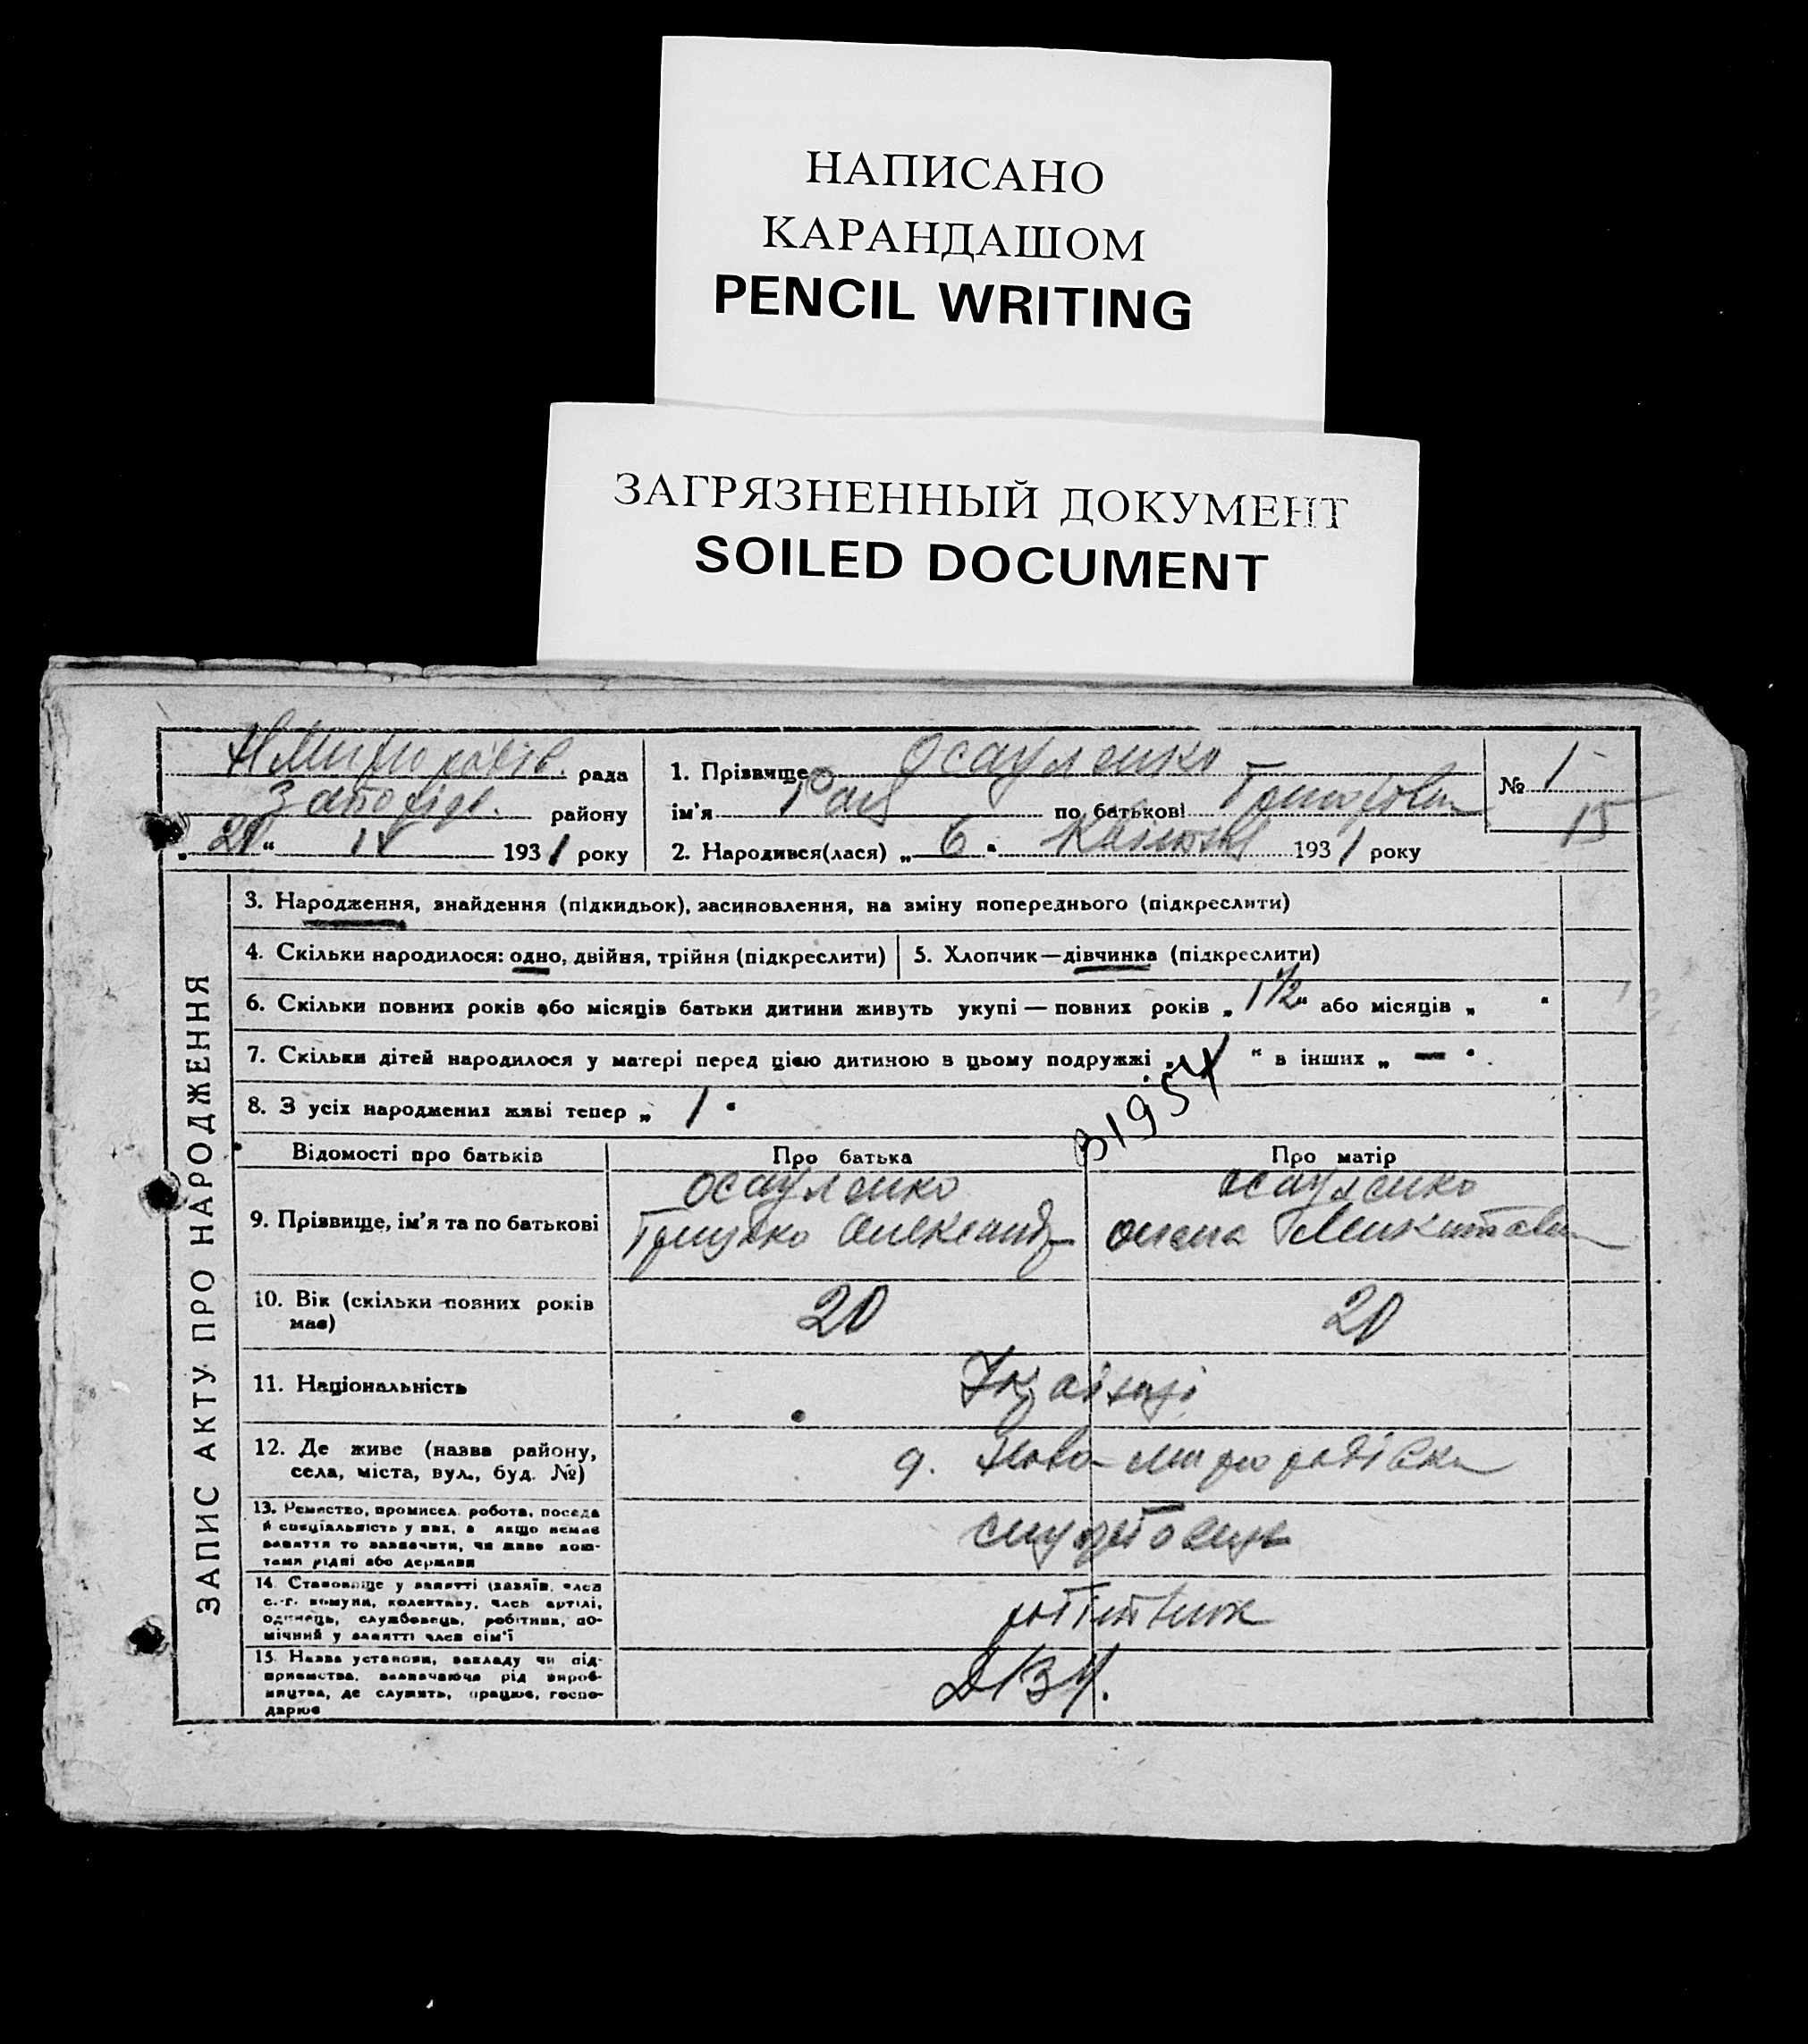 НАПИСАНО
КАРАНДАШОМ
PENCIL WRITING
ЗАГРЯЗНЕННЫЙ ДОКУМЕНТ
SOILED DOCUMENT
рада
району
„ 21 “ IV 1931 року
1. Прізвище Осауленко
ім'я Рая по батькові
2. Народився(лася) „ 6 “ Квітня 1931 року
№ 1
15
ЗАПИС АКТУ ПРО НАРОДЖЕННЯ
3. Народження, знайдення (підкидьок), засиновлення, на зміну попереднього (підкреслити)
4. Скільки народилося: одно, двійня, трійня (підкреслити)
5. Хлопчик—дівчинка (підкреслити)
6. Скільки повних років або місяців батьки дитини живуть укупі — повних років „ 1 1/2 “ або місяців „ “
7. Скільки дітей народилося у матері перед цією дитиною в цьому подружжі „ “ в інших „ — “.
8. З усіх народжених живі тепер „ 1 “
Відомості про батьків
Про батька
Про матір
9. Прізвище, ім'я та по батькові
Осауленко
Грицько Олександр
Осауленко
Олена Микитовн
10. Вік (скільки повних років
має)
20
20
11. Національність
Українці
12. Де живе (назва району,
села, міста, вул., буд. №)
13. Ремество, промисел, робота, посада
й спеціальність у них, а якщо немає
заняття то зазначити, чи живе кош-
тами рідні або держави
14. Становище у занятті (хазяїн, член
с.-г. комуни, колективу, член артілі,
одинець, службовець, робітник, по-
мічний у занятті член сім'ї
робітник
15. Назва установи, закладу чи під-
приємства, зазначаючи рід вироб-
ництва, де служить, працює, госпо-
дарює